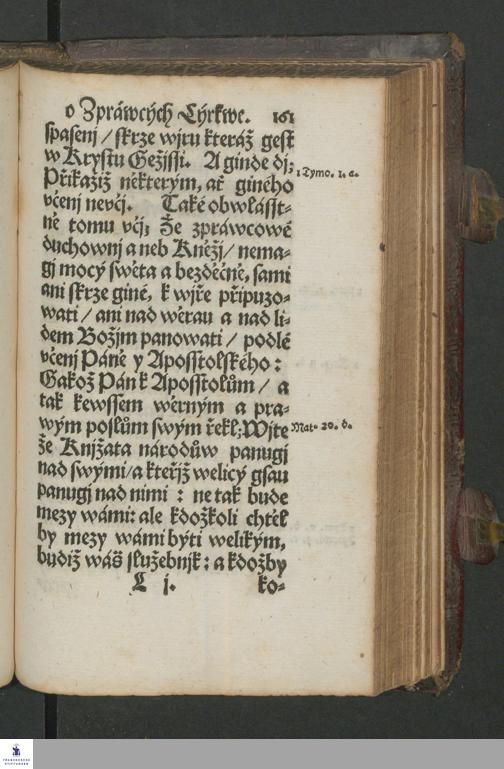 o Zpráwcých Cýrkwe. 161
spasenj / skrze wjru kteráž gest
w Krystu Gežissi. A ginde dj;
1 Tymo. 1. a.
Přikažiž některým, ať giného
včenj nevčj. Také obwlásst-
ně tomu včj; Že zpráwcowé
duchownj a neb Kněžj / nema-
gj mocý swěta a bezděčně, sami
ani skrze giné, k wjře připuzo-
wati / ani nad wěrau a nad li-
dem Božjm panowati / podlé
včenj Páně y Aposstolského:
Gakož Pán k Aposstolům / a
tak kewssem wěrným a pra-
wým poslům swým řekl; Wjte
Mat. 20. d.
že Knjžata národůw panugj
nad swými / a kteřjž welicý gsau
panugj nad nimi : ne tak bude
mezy wámi: ale kdožkoli chtěl
by mezy wámi býti welikým,
budiž wáš služebnjk: a kdožby
L j. ko-
FRANCKESCHE
STIFTUNGEN